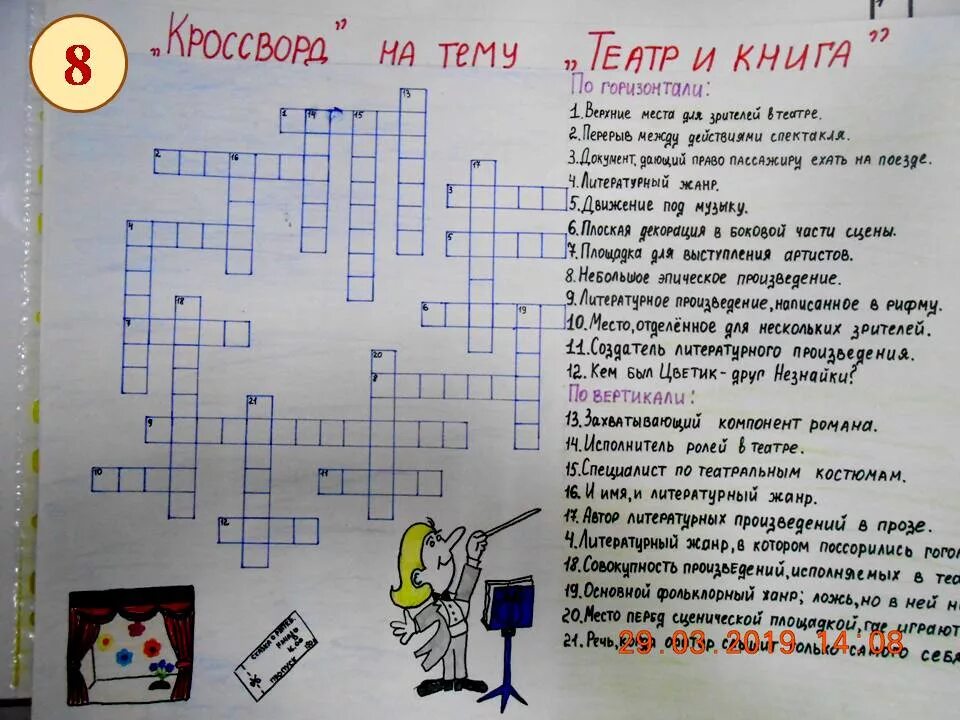 8
„Кроссворд” на тему „Театр и книга”
По горизонтали:
1. Верхние места для зрителей в театре.
2. Перерыв между действиями спектакля.
3. Документ, дающий право пассажиру ехать на поезде.
4. Литературный жанр.
5. Движение под музыку.
6. Плоская декорация в боковой части сцены.
7. Площадка для выступления артистов.
8. Небольшое эпическое произведение.
9. Литературное произведение, написанное в рифму.
10. Место, отделённое для нескольких зрителей.
11. Создатель литературного произведения.
12. Кем был Цветик - друг Незнайки?
По вертикали:
13. Захватывающий компонент романа.
14. Исполнитель ролей в театре.
15. Специалист по театральным костюмам.
16. И имя, и литературный жанр.
17. Автор литературных произведений в прозе.
4. Литературный жанр, в котором поссорились гогол
18. Совокупность произведений, исполняемых в теа
19. Основной фольклорный жанр; ложь, но в ней н
20. Место перед сценической площадкой, где играют
21. Речь, когда оратор слышит только самого себя
29.03.2019 14:08
13
1 14 15
2 16 17
3
4 5
18 6 19
7
20
8
21
9
10 11
12
пропуск